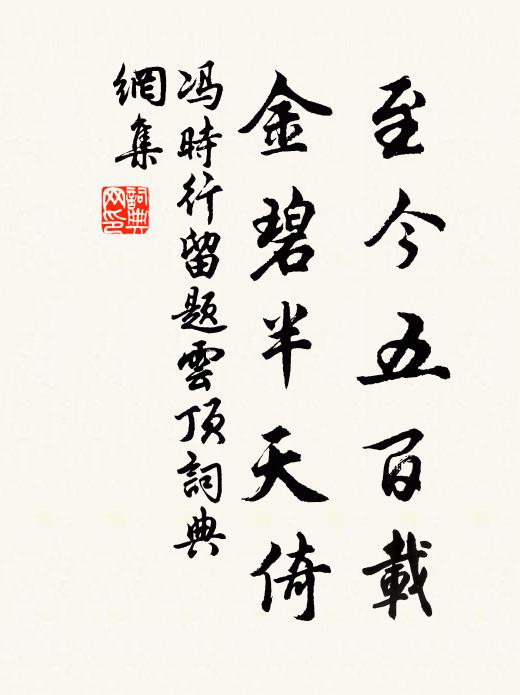 至今五百載
金碧半天倚
冯時行留題雲頂詞典
網集
詞典网印